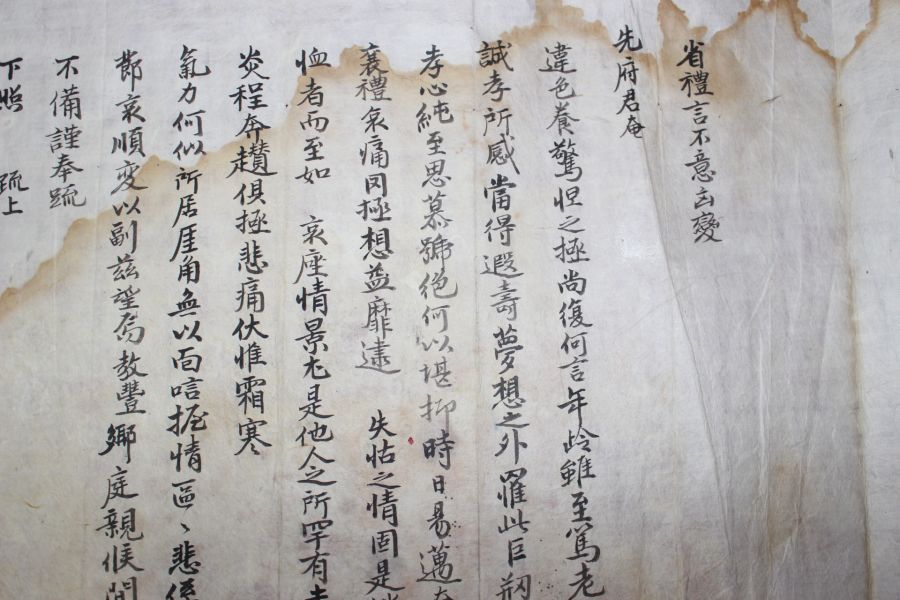 省禮言不意凶變
先府君奄
違色養驚怛之極尙復何言年齡雖至篤老
誠孝所感當得遐壽夢想之外罹此巨刱
孝心純至思慕號絶何以堪抑時日易邁奄
襄禮哀痛罔極想益靡逮 失怙之情固是
恤者而至如 哀座情景尤是他人之所罕有
炎程奔趲俱極悲痛伏惟霜寒
氣力何似所居厓角無以面唁握情區〻悲係
節哀順變以副玆望爲敎豐鄕庭親候間
不備謹奉疏
下照 疏上